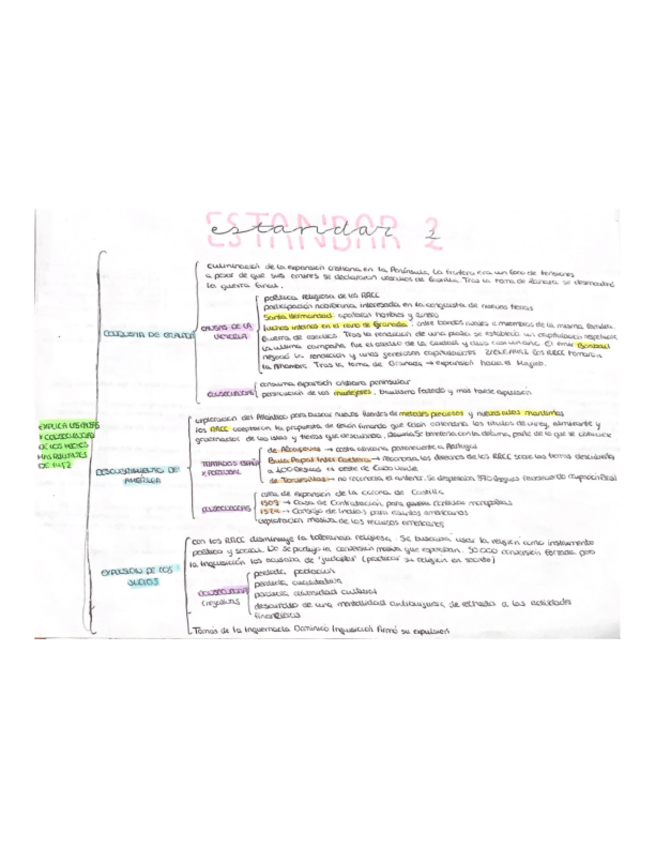 ESTANDAR 2
estandar 1
culminación de la expansión cristiana en la Península. La frontera era un foco de tensiones
a pesar de que sus emires se declararon vasallos de Castilla. Tras la toma de Zahara se desencadenó
la guerra final.
CONQUISTA DE
CAUSAS DE LA
VICTORIA
política religiosa de los RRCC
participación nobiliaria, interesada en la conquista de nuevas tierras
Santa Hermandad: aportaron hombres y dinero
luchas internas en el reino de Granada: entre bandos rivales o miembros de la misma familia.
Guerra de asedios. Tras la rendición de una plaza se establecía un capitulación
La última campaña fue el asedio de la ciudad y El emir Boabdil
negoció la rendición y unas generosas capitulaciones. 2 ENE 1492 los RRCC tomaron
la Alhambra. Tras la toma de Granada → expansión hacia el Magreb.
expansión cristiana peninsular
de los mudéjares, bautismo forzado y más tarde expulsión
EXPLICA
Y
DE LOS HECHOS
MÁS
DE 1492
DESCUBRIMIENTO DE
AMÉRICA
exploración del Atlántico para buscar nuevas fuentes de metales preciosos y nuevas rutas marítimas
los RRCC aceptaron la propuesta de Colón firmando que Colón obtendría los títulos de virrey, almirante y
gobernador de las islas y tierras que descubriera,
TRATADOS
Y PORTUGAL
de Alcaçovas → costa africana perteneciente a Portugal
Bula Papal Inter Caetera → reconocía los derechos de los RRCC sobre las tierras descubiertas
a 100 leguas al oeste de Cabo Verde
de Tordesillas → no reconocía el anterior. Se desplazan 370 leguas
de expansión de la corona de Castilla
→ Casa de Contratación para
1524 → Consejo de Indias para asuntos americanos
explotación masiva de los recursos americanos
EXPULSIÓN DE LOS
JUDÍOS
con los RRCC disminuye la tolerancia religiosa. Se buscaba usar la religión como instrumento
político y social. No se produjo la conversión masiva que esperaban. 50.000 conversión forzada, pero
la Inquisición los acusaba de "judaizar" (practicar su religión en secreto)
(negativas)
pérdida población
pérdida
pérdida diversidad cultural
desarrollo de una mentalidad de rechazo a las actividades
financieras
Tomás de Dominico Inquisición firmó su expulsión